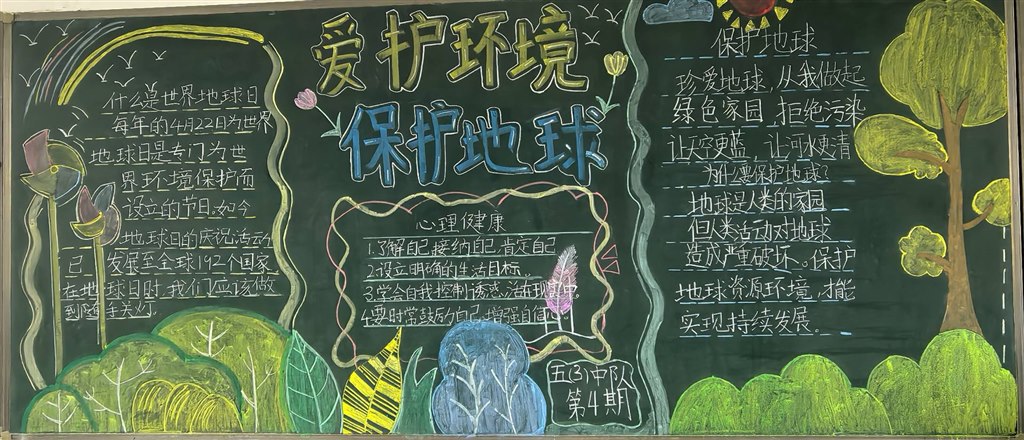 爱护环境
保护地球
什么是世界地球日
每年的4月22日为世界
地球日是专门为世
界环境保护而
设立的节日.如今
地球日的庆祝活动
已发展至全球192个国家
在地球日时,我们应该做
到随手关灯。
心理健康
1.了解自己,接纳自己,肯定自己
2.设立明确的生活目标。
3.学会自我控制诱惑,活在现实中
4.要时常鼓励自己,增强自信
五(3)中队
第4期
保护地球
珍爱地球,从我做起
绿色家园,拒绝污染
让天空更蓝,让河水更清
为什么要保护地球?
地球是人类的家园
但人类活动对地球
造成严重破坏。保护
地球资源环境,才能
实现持续发展。